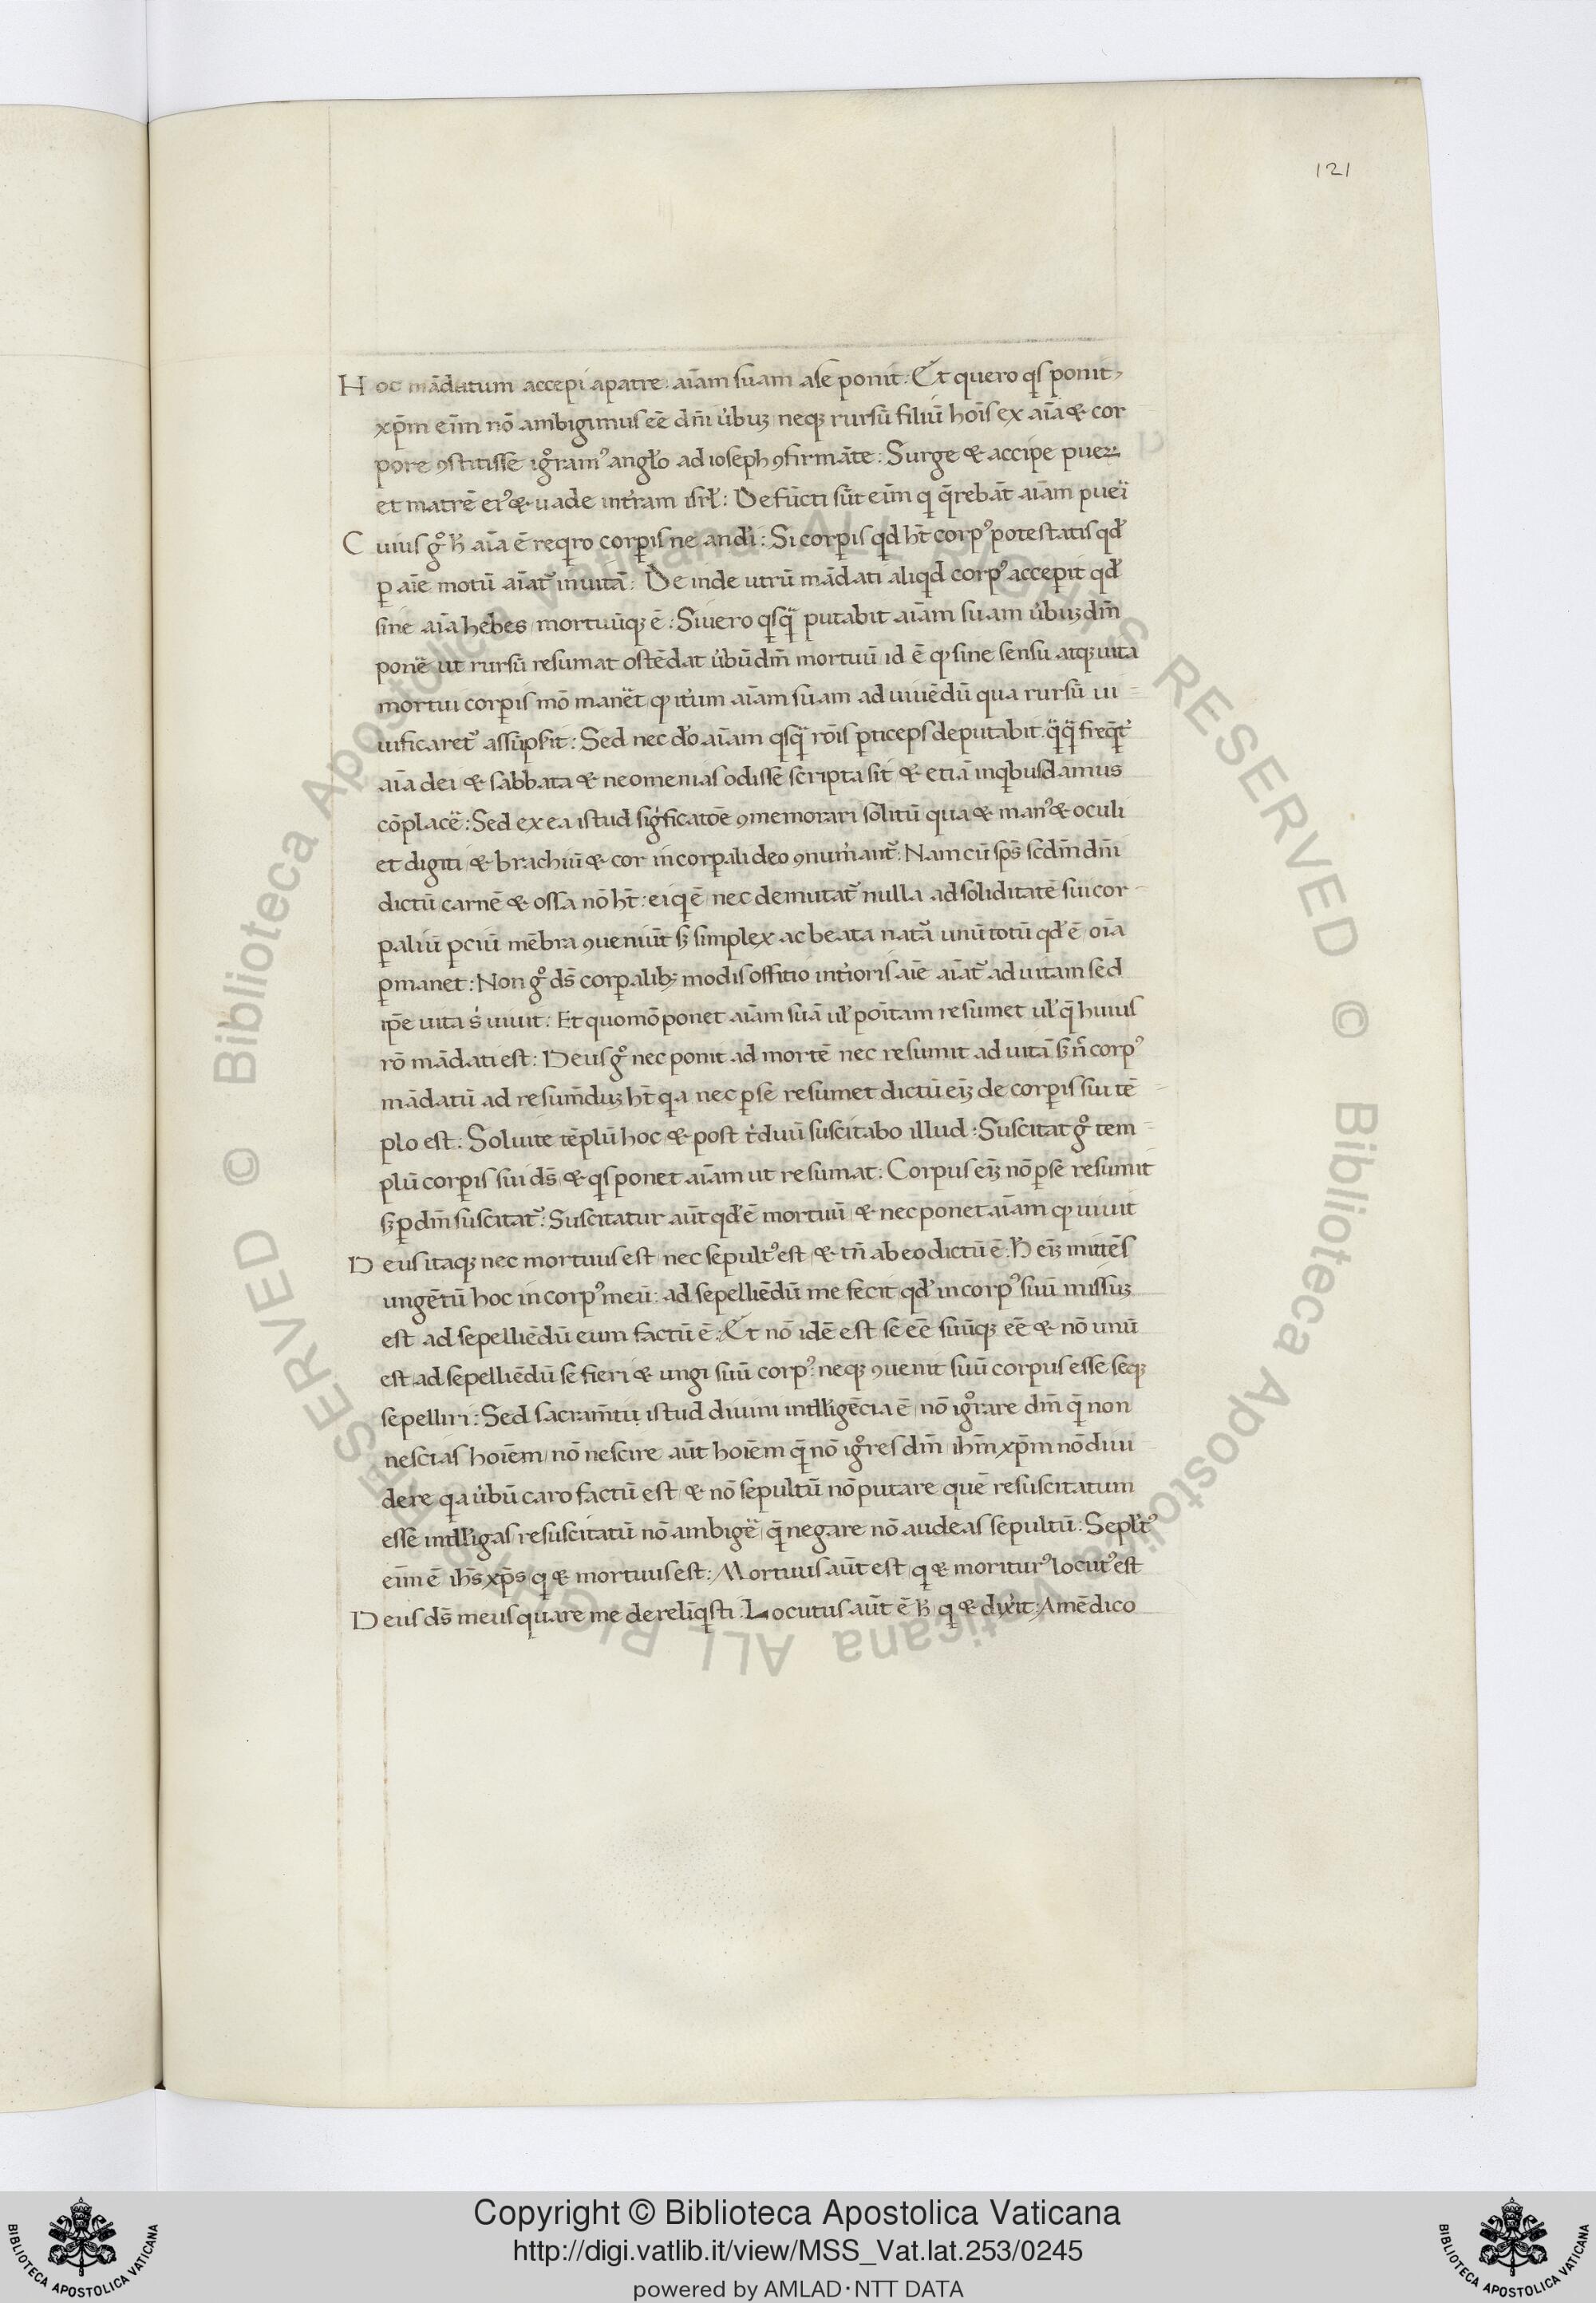 121
Hoc mādatum accepi apatre: aīam suam ase ponit: Et quero qs ponit,
xp̄m eīm nō ambigimus eē dn̄i u̓buꝫ neqꝫ rursū filiū hoīs ex aīa & cor
pore ꝯstitisse ig̊ram᾽ angło ad ioseph ꝯfirmāte: Surge & accipe pueꝝ
et matrē ei᾽ & uade int̓ram isrł: Defūcti sūt eīm q q̄rebāt aīam pueı̈
Cuius g̊ h̄ aīa ē reqro corꝑis ne an dı̓: Si corꝑis qd h̄t corp᾽ potestatis qd̓
ꝑ aīe motū aīat᾽ inuitā: De inde utrū mādati aliqd corp᾽ acceꝑit qd̓
sine aīa hebes mortuūqꝫ ē: Siuero qsq̈ putabit aīam suam u̓buꝫ dm̄
ponë ut rursū resumat ostēdat u̓bū dm̄ mortuū id ē ꝙ sine sensu atqꝫ uita
mortui corꝑis mō manët ꝙ it̓um aīam suam ad uiuēdū qua rursū ui-
uificaret᾽ assūpsit: Sed nec d̓o aīam qsq̈ rōis ꝑticeps deputabit q̈q̈ freq̄t̓
aīa dei & sabbata & neomenias odisse scripta sit & etiā inqbusdāmus
cōplacë: Sed ex ea istud sig̓ficatōe ꝯmemorari solitū qua & man᾽ & oculi
et digiti & brachiū & cor incorꝑali deo ꝯnum̓ant᾽: Nam cū sp̄s scd̄m dn̄i
dictū carnē & ossa nō h̄t: ei q ē nec demutat᾽ nulla ad soliditatē sui cor-
ꝑaliū ꝑciū mēbra ꝯueniūt sꝫ simplex ac beata nat᾽a unū totū qd̓ ē oīa
ꝑmanet: Non g̊ ds̄ corꝑalibꝫ modis offitio int̓ioris aīe aīat᾽ ad uitam sed
ip̄e uita s̓ uiuit: Et quomō ponet aīam suā uł poītam resumet uł q̄ huius
rō mādati est: Deus g̊ nec ponit ad mortē nec resumit ad uitā sꝫ n̄ corp᾽
mādatū ad resum̄duꝫ h̄t qa nec ꝑse resumet dictū eıꝫ de corꝑis sui tē-
plo est: Soluite tēplū hoc & post t̓duū suscitabo illud: Suscitat g̊ tem-
plū corꝑis sui ds̄ & qs ponet aīam ut resumat: Corpus eıꝫ nō ꝑse resumit
sꝫ ꝑ dm̄ suscitat᾽: Suscitatur aūt qd̓ ē mortuū & nec ponet aīam ꝙ uiuit
Deus itaqꝫ nec mortuus est nec sepult᾽ est & tn̄ ab eo dictū ē: h̄ eıꝫ mittēs
ungētū hoc in corp᾽ meū: ad sepelliēdū me fecit qd̓ in corp᾽ suū missuꝫ
est ad sepelliēdū eum factū ē: Et nō idē est se eē suūqꝫ eē & nō unū
est ad sepelliēdū se fieri & ungi suū corp᾽: neqꝫ ꝯuenit suū corpus esse seqꝫ
sepelliri: Sed sacram̄tu istud diuini intłligēcia ē nō ig̊rare dm̄ q̄ non
nescias hoīem nō nescire aūt hoīem q̄ nō ig̊res dm̄ ihm̄ xp̄m nō diui
dere qa u̓bū caro factū est & nō sepultū nō putare quē resuscitatum
esse intłligas resuscitatū nō ambigë q̄ negare nō audeas sepultū: Sepłt᾽
eīm ē ihs̄ xp̄s q & mortuus est: Mortuus aūt est q & moritur᾽ locut᾽ est
Deus ds̄ meus quare me dereliqsti: Locutus aūt ē h̄ q & dix̓it: Amē dico
Copyright © Biblioteca Apostolica Vaticana
http://digi.vatlib.it/view/MSS_Vat.lat.253/0245
powered by AMLAD·NTT DATA